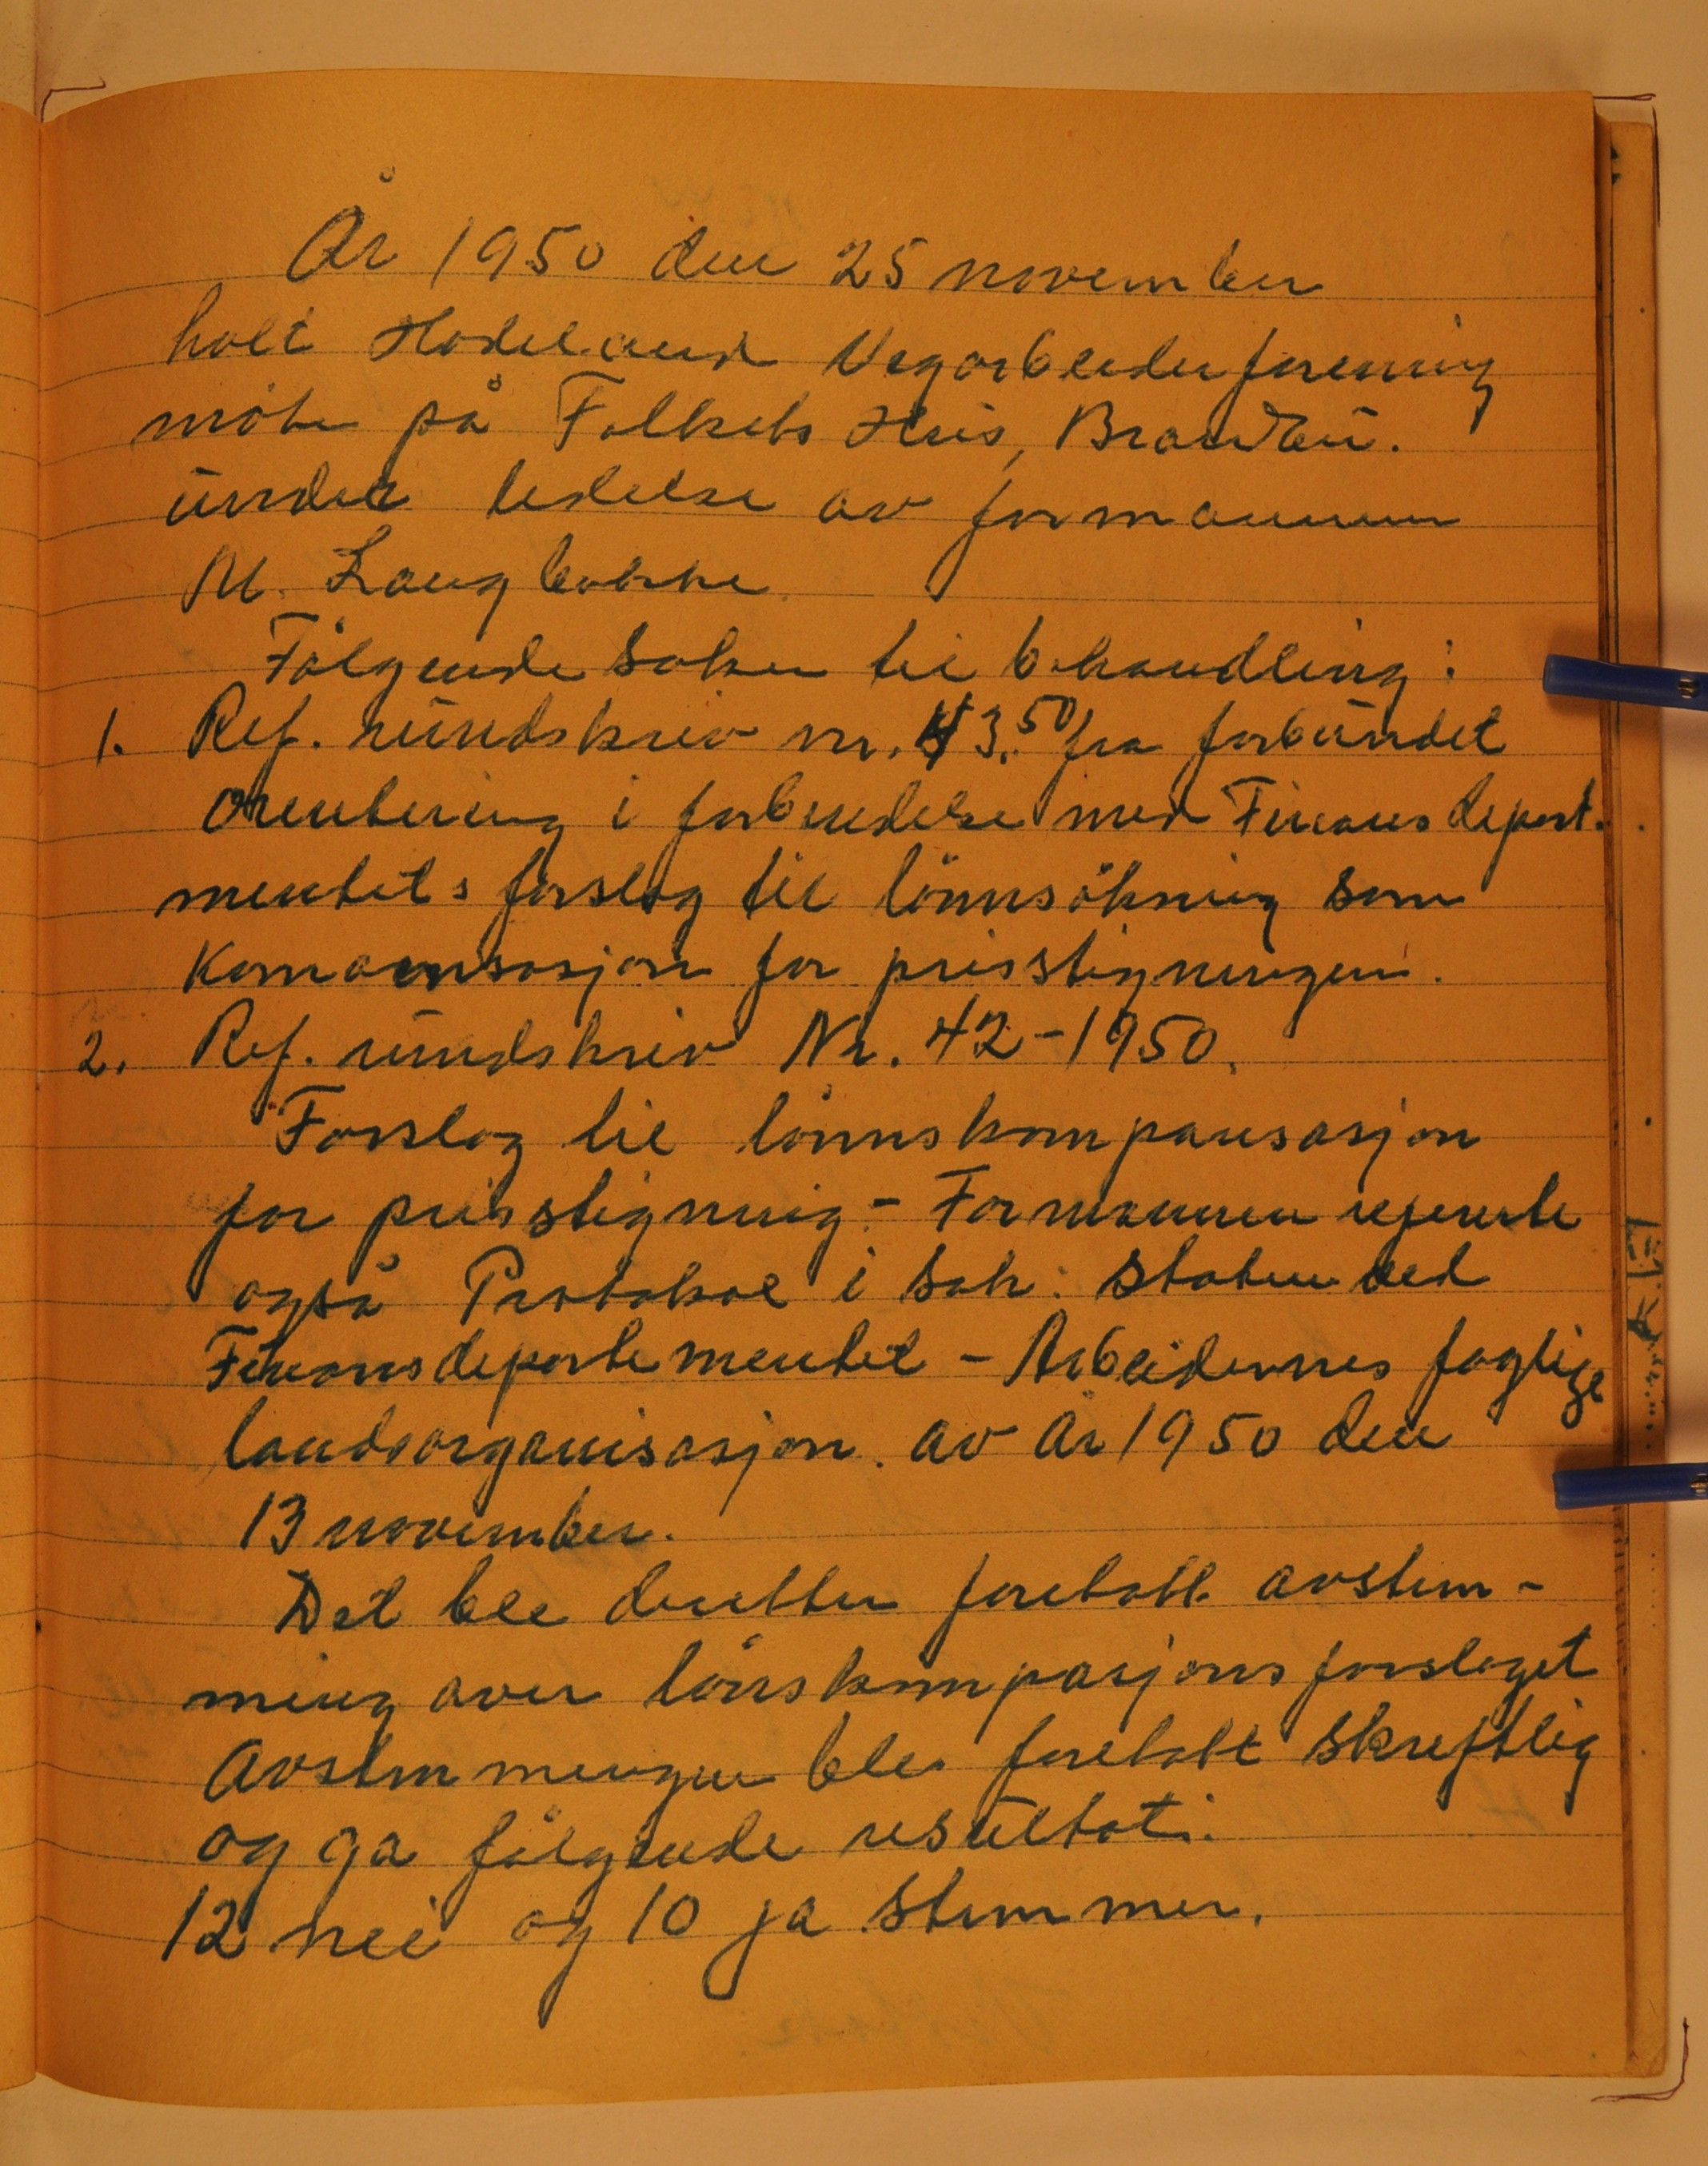 År 1950 den 25 november
holt Hadeland Vegarbeiderforening
møte på Folkets Hus, Brandbu.
under ledelse av formannen
M. Langbakke
Følgende saker til behandling:
1. Ref. rundskriv nr. 43.50 fra forbundet
Orientering i forbindelse med Finansdepart.
mentets forslag til lønnsøkning som
Komoensasjon for prisstigningen.
2. Ref. rundskriv Nr. 42-1950.
Forslag til lønnskompansasjon
for prisstigning - Formannen refererte
også Protokol i sak: Staten ved
Finansdepartementet - Arbeidernes faglige
landsorganisasjon. av År 1950 den
13 november.
Det ble deretter foretatt avstem-
ming over lønskompasjonsforslaget
Avstemmingen ble foretatt skreftlig
og ga følgende resultat:
12 nei og 10 ja stemmer.